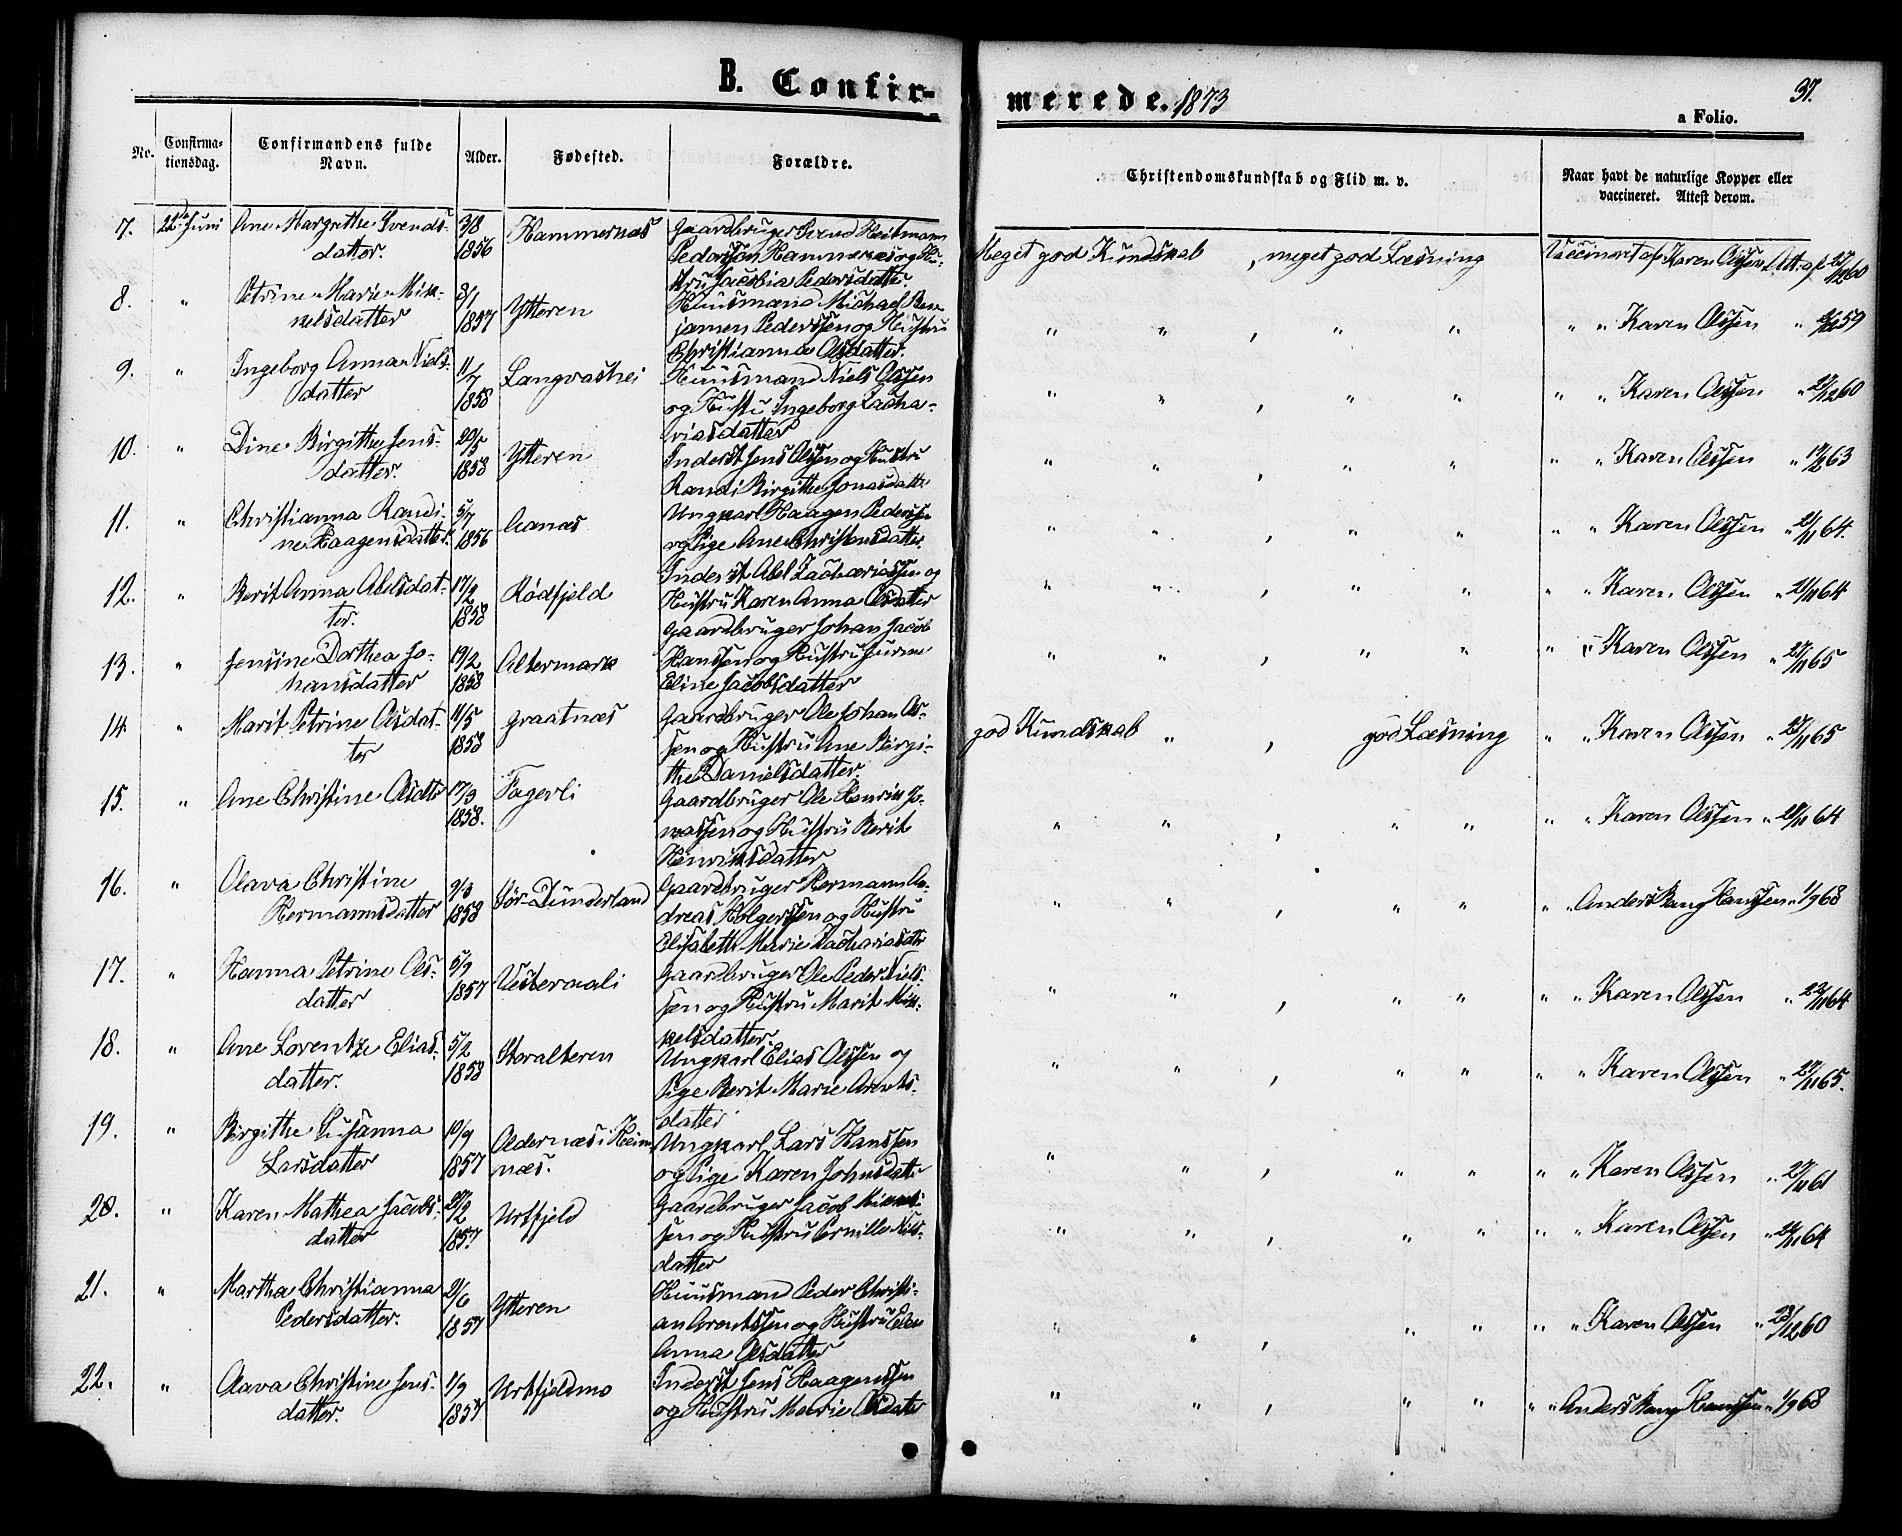 B. Confir-
merede. 1873
37.
a Folio.
No.
Confirma-
tionsdag.
Confirmandens fulde
Navn.
Alder.
Fødested.
Forældre.
Christendomskundskab og Flid m. v.
Naar havt de naturlige Kopper eller
vaccineret. Attest derom.
7. 22de Juni Ane Margrethe Svends-
datter. 3/8 1856 Hammernæs Gaardbruger Svend Heitmann
Pederssen Hammernæs og Hu-
stru Jacobia Pedersdatter. Meget god Kundskab , meget god Læsning Vaccineret af Karen Olssen Att. af 27/12 60
8. " Petrine Marie Mik-
kelsdatter 3/1 1857 Ytteren Huusmand Michael Ben-
jamen Pederssen og Hustru
Christianna Olsdatter. " " , " " " " Karen Olssen " 59
9. " Ingeborg Anna Niels-
datter 11/7 1858 Langvashei Huusmand Niels Olssen
og Hustru Ingeborg Zacha-
riasdatter " " , " " " " Karen Olssen " 27/12 60
10. " Dine Birgitthe Jens-
datter. 20/5 1858 Ytteren Inderst Jens Olssen og Hustru
Randi Birgitthe Jonasdatter " " , " " " " Karen Olssen " 63
11. " Christianna Randi-
ne Haagensdatter 5/7 1856 Aanæs Ungkarl Haagen Pederssen
og Pige Ane Christensdatter. " " , " " " " Karen Olssen " 21/11 64.
12. " Berit Anna Abelsdat-
ter. 17/2 1858 Rødfjeld Inderst Abel Zachariassen og
Hustru Karen Anna Olsdatter " " , " " " " Karen Olssen " 21/11 64
13. " Jensine Dorthea Jo-
hansdatter 19/2 1858 Altermark Gaardbruger Johan Jacob
Hanssen og Hustru
Eline Jacobsdatter " " , " " " " Karen Olssen " 27/11 65
14. " Marit Petrine Olsdat-
ter 11/5 1858 Graatnæs Gaardbruger Ole Johan Ols-
sen og Hustru Ane Birgi-
the Danielsdatter. god Kundskab " , god Læsning " " Karen Olssen " 27/11 65
15. " Ane Christine Olsdtr 17/3 1858. Fagerli Gaardbruger Ole Henrik Jo-
nassen og Hustru Berit
Henriksdatter " " , " " " " Karen Olssen " 64
16. " Olava Christine
Hermannsdatter 9/3 1858 Sør-Dunderland Gaardbruger Hermann An-
dreas Holgerssen og Hustru
Elisabeth Marie Zachariasdtr " " , " " " " Anders Bang Hanssen " 1/9 68
17. " Hanna Petrine Ols-
datter 5/9 1857 Vesternali Gaardbruger Ole Peder Niels-
sen og Hustru Marit Mik-
kelsdatter. " " , " " " " Karen Olssen " 22/11 64
18. " Ane Lorentze Elias-
datter. 5/2 1858 Storalteren Ungkarl Elias Olssen og
Pige Berit Marie Arents-
datter " " , " " " " Karen Olssen " 27/11 65.
19. " Birgitthe Susanna
Larsdatter 10/9 1857 Oldernæs i Hem-
næs. Ungkarl Lars Hanssen
og Pige Karen Johnsdatter " " , " " " " Karen Olssen " 27/11 61
20. " Karen Mathea Jacobs-
datter 1857 Urtfjeld Gaardbruger Jacob
sen og Hustru Pernille Niels-
datter " " , " " " " Karen Olssen " 64
21. " Martha Christianna
Pedersdatter. 2/6 1857 Ytteren Huusmand Peder Christi-
an Arentssen og Hustru Ellen
Anna Olsdatter " " , " " " " Karen Olssen " 23/12 60
22. " Olava Christine Jens-
datter. 1/9 1857 Urtfjeldmo Inderst Jens Haagenssen
og Hustru Marie Olsdatter " " , " " " " Anders Bang Hanssen " 1/9 68